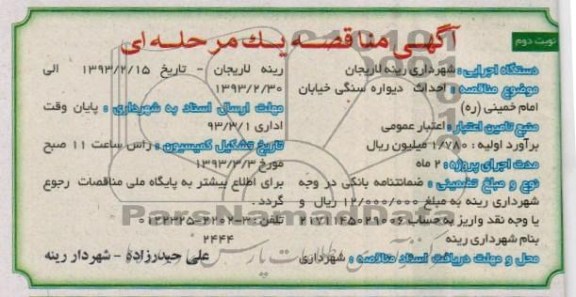 آگهی مناقصه یک مرحله ای
نوبت دوم
دستگاه اجرایی: شهرداری رینه لاریجان
موضوع مناقصه: احداث دیواره سنگی خیابان
امام خمینی (ره)
منبع تامین اعتبار: اعتبار عمومی
برآورد اولیه: ۱/۷۸۰ میلیون ریال
مدت اجرای پروژه: ۲ ماه
نوع و مبلغ تضمینی: ضمانتنامه بانکی در وجه
شهرداری رینه به مبلغ ۱۲/۰۰۰/۰۰۰ ریال و
یا وجه نقد واریز به حساب ۲۱۷۱۱۴۵۰۲۹۰۰۶
بنام شهرداری رینه
محل و مهلت دریافت اسناد مناقصه: شهرداری
رینه لاریجان - تاریخ ۱۳۹۳/۲/۱۵ الی
۱۳۹۳/۲/۳۰
مهلت ارسال اسناد به شهرداری: پایان وقت
اداری ۹۳/۳/۱
تاریخ تشکیل کمیسیون: راس ساعت ۱۱ صبح
مورخ ۱۳۹۳/۳/۳
برای اطلاع بیشتر به پایگاه ملی مناقصات رجوع
گردد.
تلفن: ۳-۰۱۲۲۳۲۵۳۲۰۲
۲۴۴۴
علی حیدرزاده - شهردار رینه